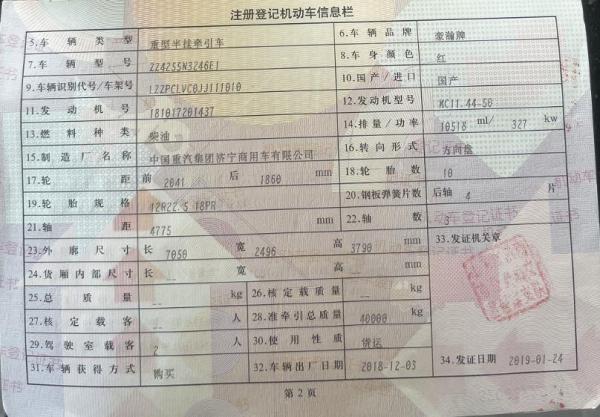 注册登记机动车信息栏
5.车辆类型 重型半挂牵引车 6.车辆品牌 豪瀚牌
7.车辆型号 ZZ4255N3246E1 8.车身颜色 红
9.车辆识别代号/车架号 LZZPCLVC0JJ111010 10.国产/进口 国产
11.发动机号 181017201437 12.发动机型号 MC11.44-50
13.燃料种类 柴油 14.排量/功率 10518 ml/ 327 kw
15.制造厂名称 中国重汽集团济宁商用车有限公司 16.转向形式 方向盘
17.轮距 前 2041 后 1860 mm 18.轮胎数 10
19.轮胎规格 12R22.5 18PR 20.钢板弹簧片数 后轴 4 片
21.轴距 4775 mm 22.轴数
23.外廓尺寸 长 7050 宽 2496 高 3790 mm 33.发证机关章
24.货厢内部尺寸 长 -- 宽 -- 高 -- mm
25.总质量 -- kg 26.核定载质量 -- kg
27.核定载客 -- 人 28.准牵引总质量 40000 kg
29.驾驶室载客 2 人 30.使用性质 货运
31.车辆获得方式 购买 32.车辆出厂日期 2018-12-03 34.发证日期 2019-01-24
第2页